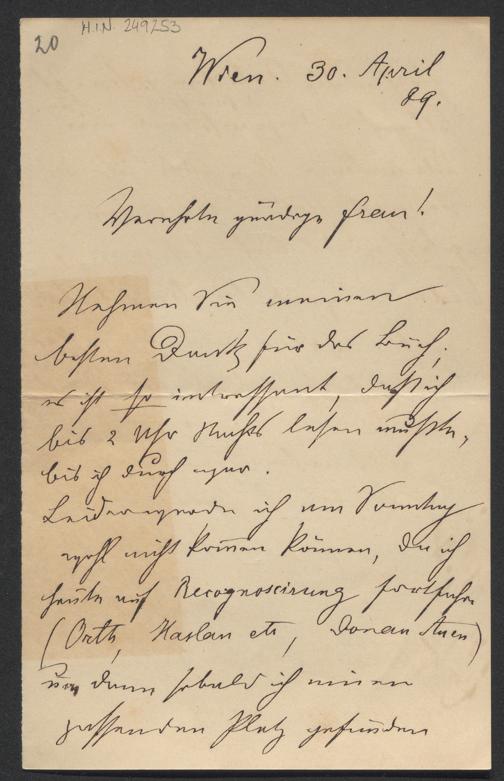 20
H.I.N. 249253
Wien. 30. April
89.
Verehrte gnädige Frau!
Nehmen Sie meinen
besten Dank für das Buch;
es ist so intressant, daß ich
bis 2 Uhr Nachts lesen mußte,
bis ich durch war.
Leider werde ich am Sonntag
wohl nicht kommen können, da ich
heute auf Recognoscirung fortfahre
(Orth, Haslau etc, Donau Auen)
um dann sobald ich einen
passenden Platz gefunden